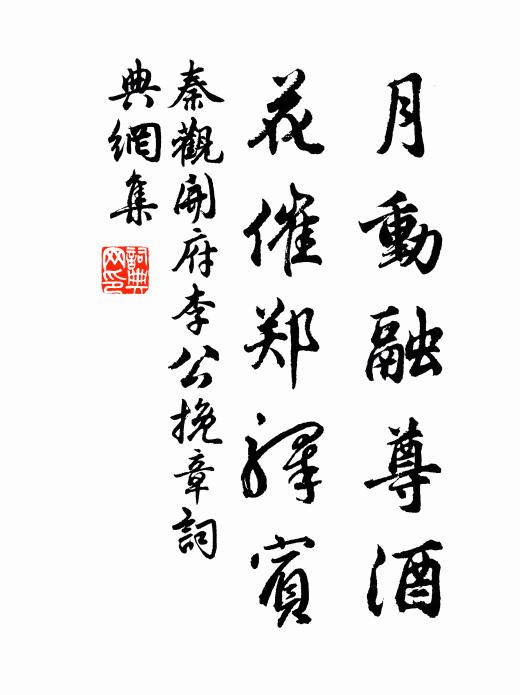 月動融尊酒
花催郑驛賓
秦觀開府李公挽章詞
典網集
詞典網印